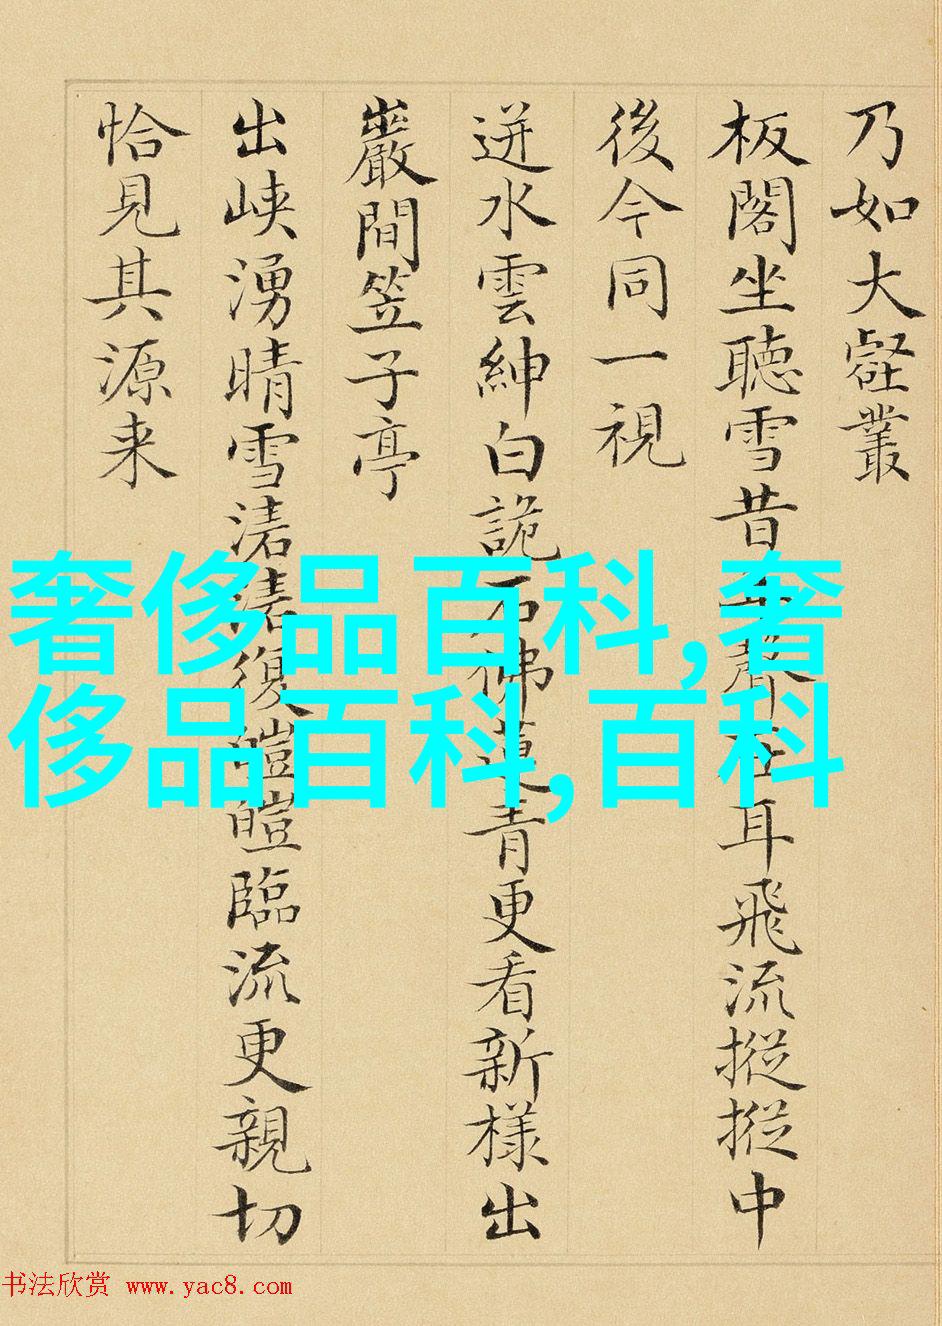 乃如大壑叢
板閣坐聽雪昔年聲在耳飛流摐摐中
後今同一視
迸水雲紳白詭石佛蓮青更看新樣出
巖間笠子亭
出峽湧晴雪涾涾復皚皚臨流更親切
恰見其源来
奢侈品百科,奢
侈品百科,百科
书法欣赏 www.yac8.com